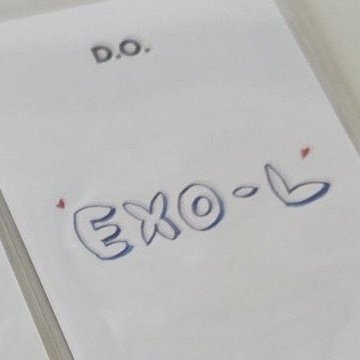 D.O.
EXO-L